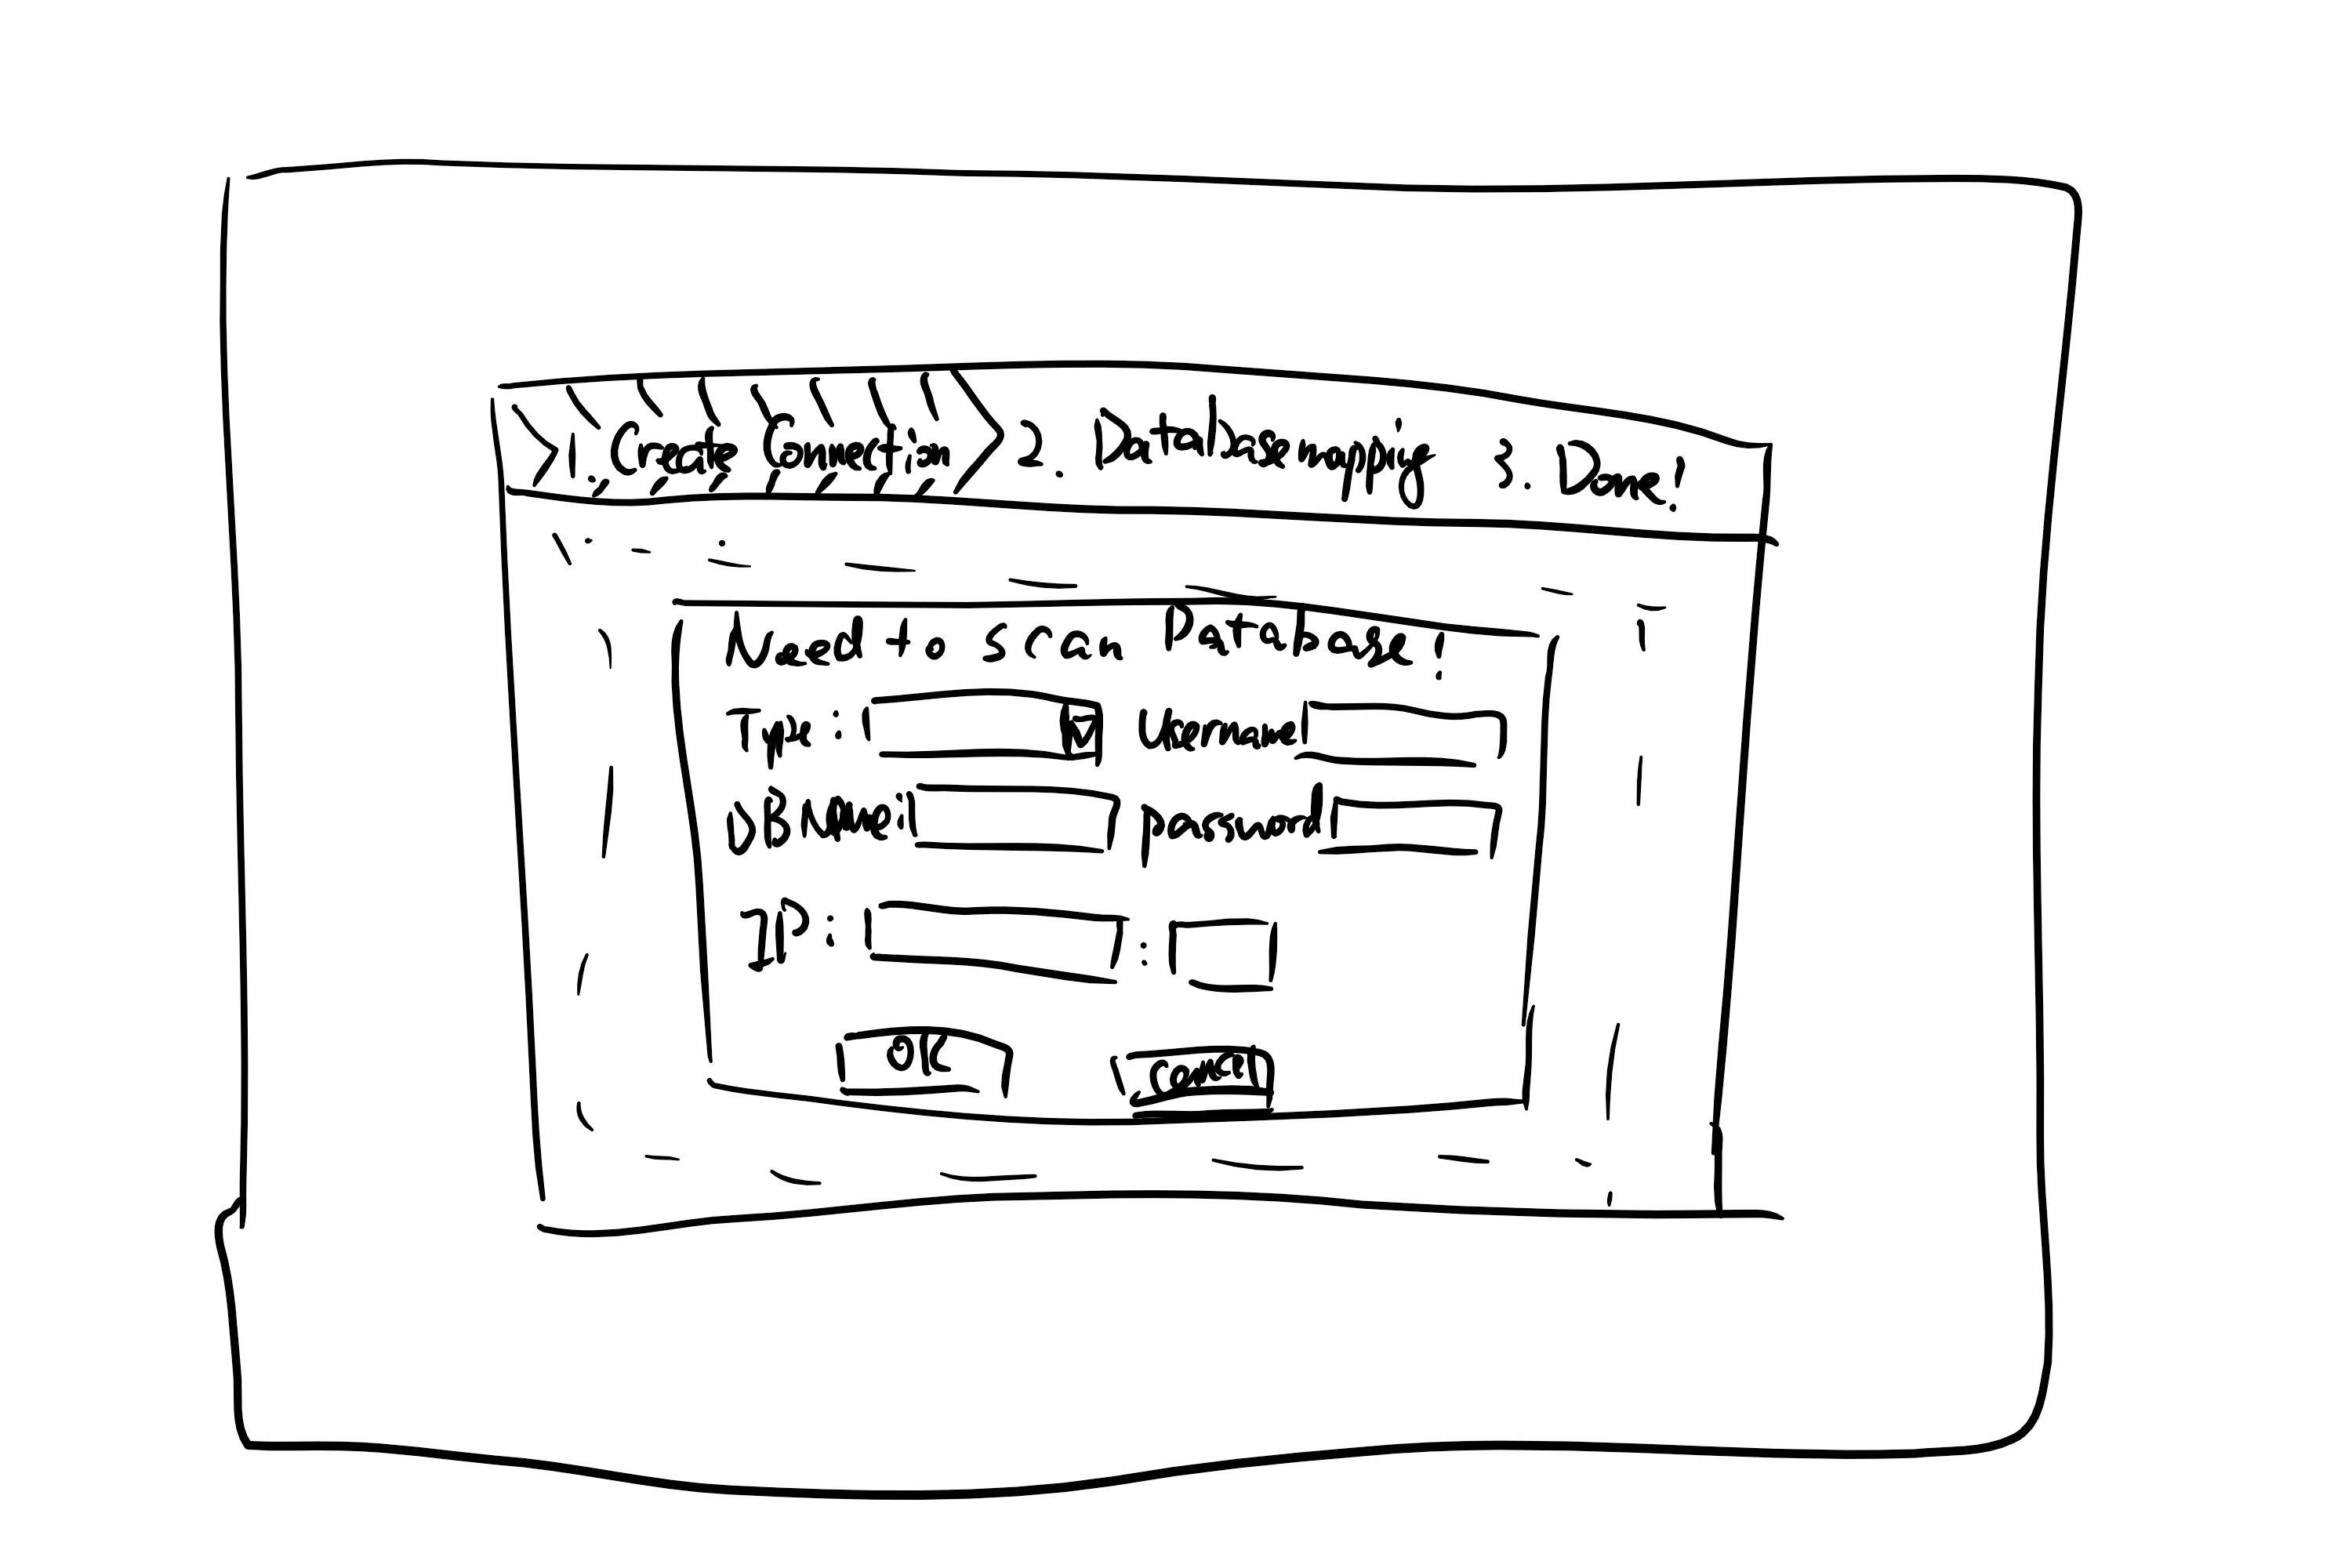 1. Create Connection 2. Database mapping 3. Done!
Need to scan Database!
Type: Username
DB Name: password
IP: :
OK Cancel